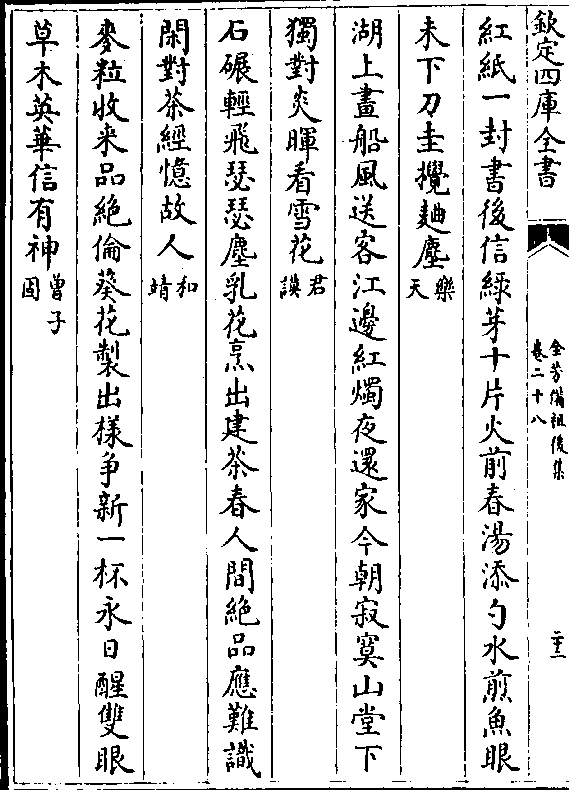 欽定四庫全書
全芳備祖後集
卷二十八
二十二
紅紙一封書後信綠芽十片火前春湯添勺水煎魚眼
末下刀圭攪麯塵樂天
湖上畫船風送客江邊紅燭夜還家今朝寂寞山堂下
獨對炎暉看雪花君謨
石碾輕飛瑟瑟塵乳花烹出建茶春人間絶品應難識
閑對茶經憶故人和靖
麥粒收来品絶倫葵花製出様争新一杯永日醒雙眼
草木英華信有神曾子固